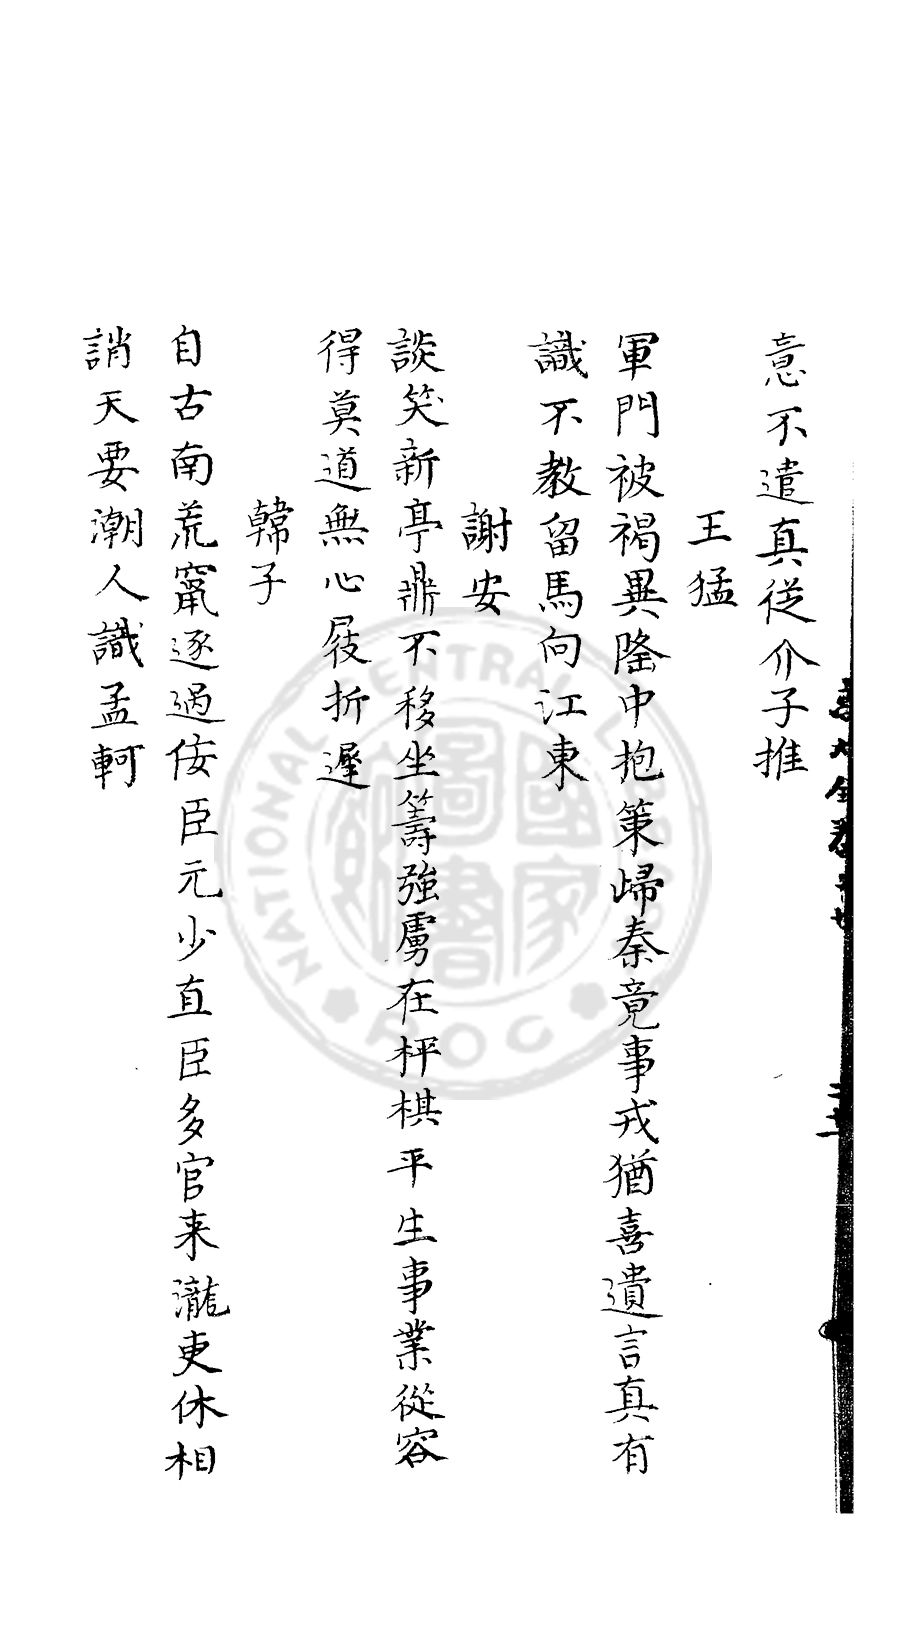 意不遣真從介子推
王猛
軍門被褐異隆中抱策歸秦竟事戎猶喜遺言真有
識不教留馬向江東
謝安
談笑新亭鼎不移坐籌強虜在枰棋平生事業從容
得莫道無心屐折遲
韓子
自古南荒竄逐過佞臣元少直臣多官来瀧吏休相
誚天要潮人識孟軻
NATIONAL CENTRAL LIBRARY
ROC
國家圖書館